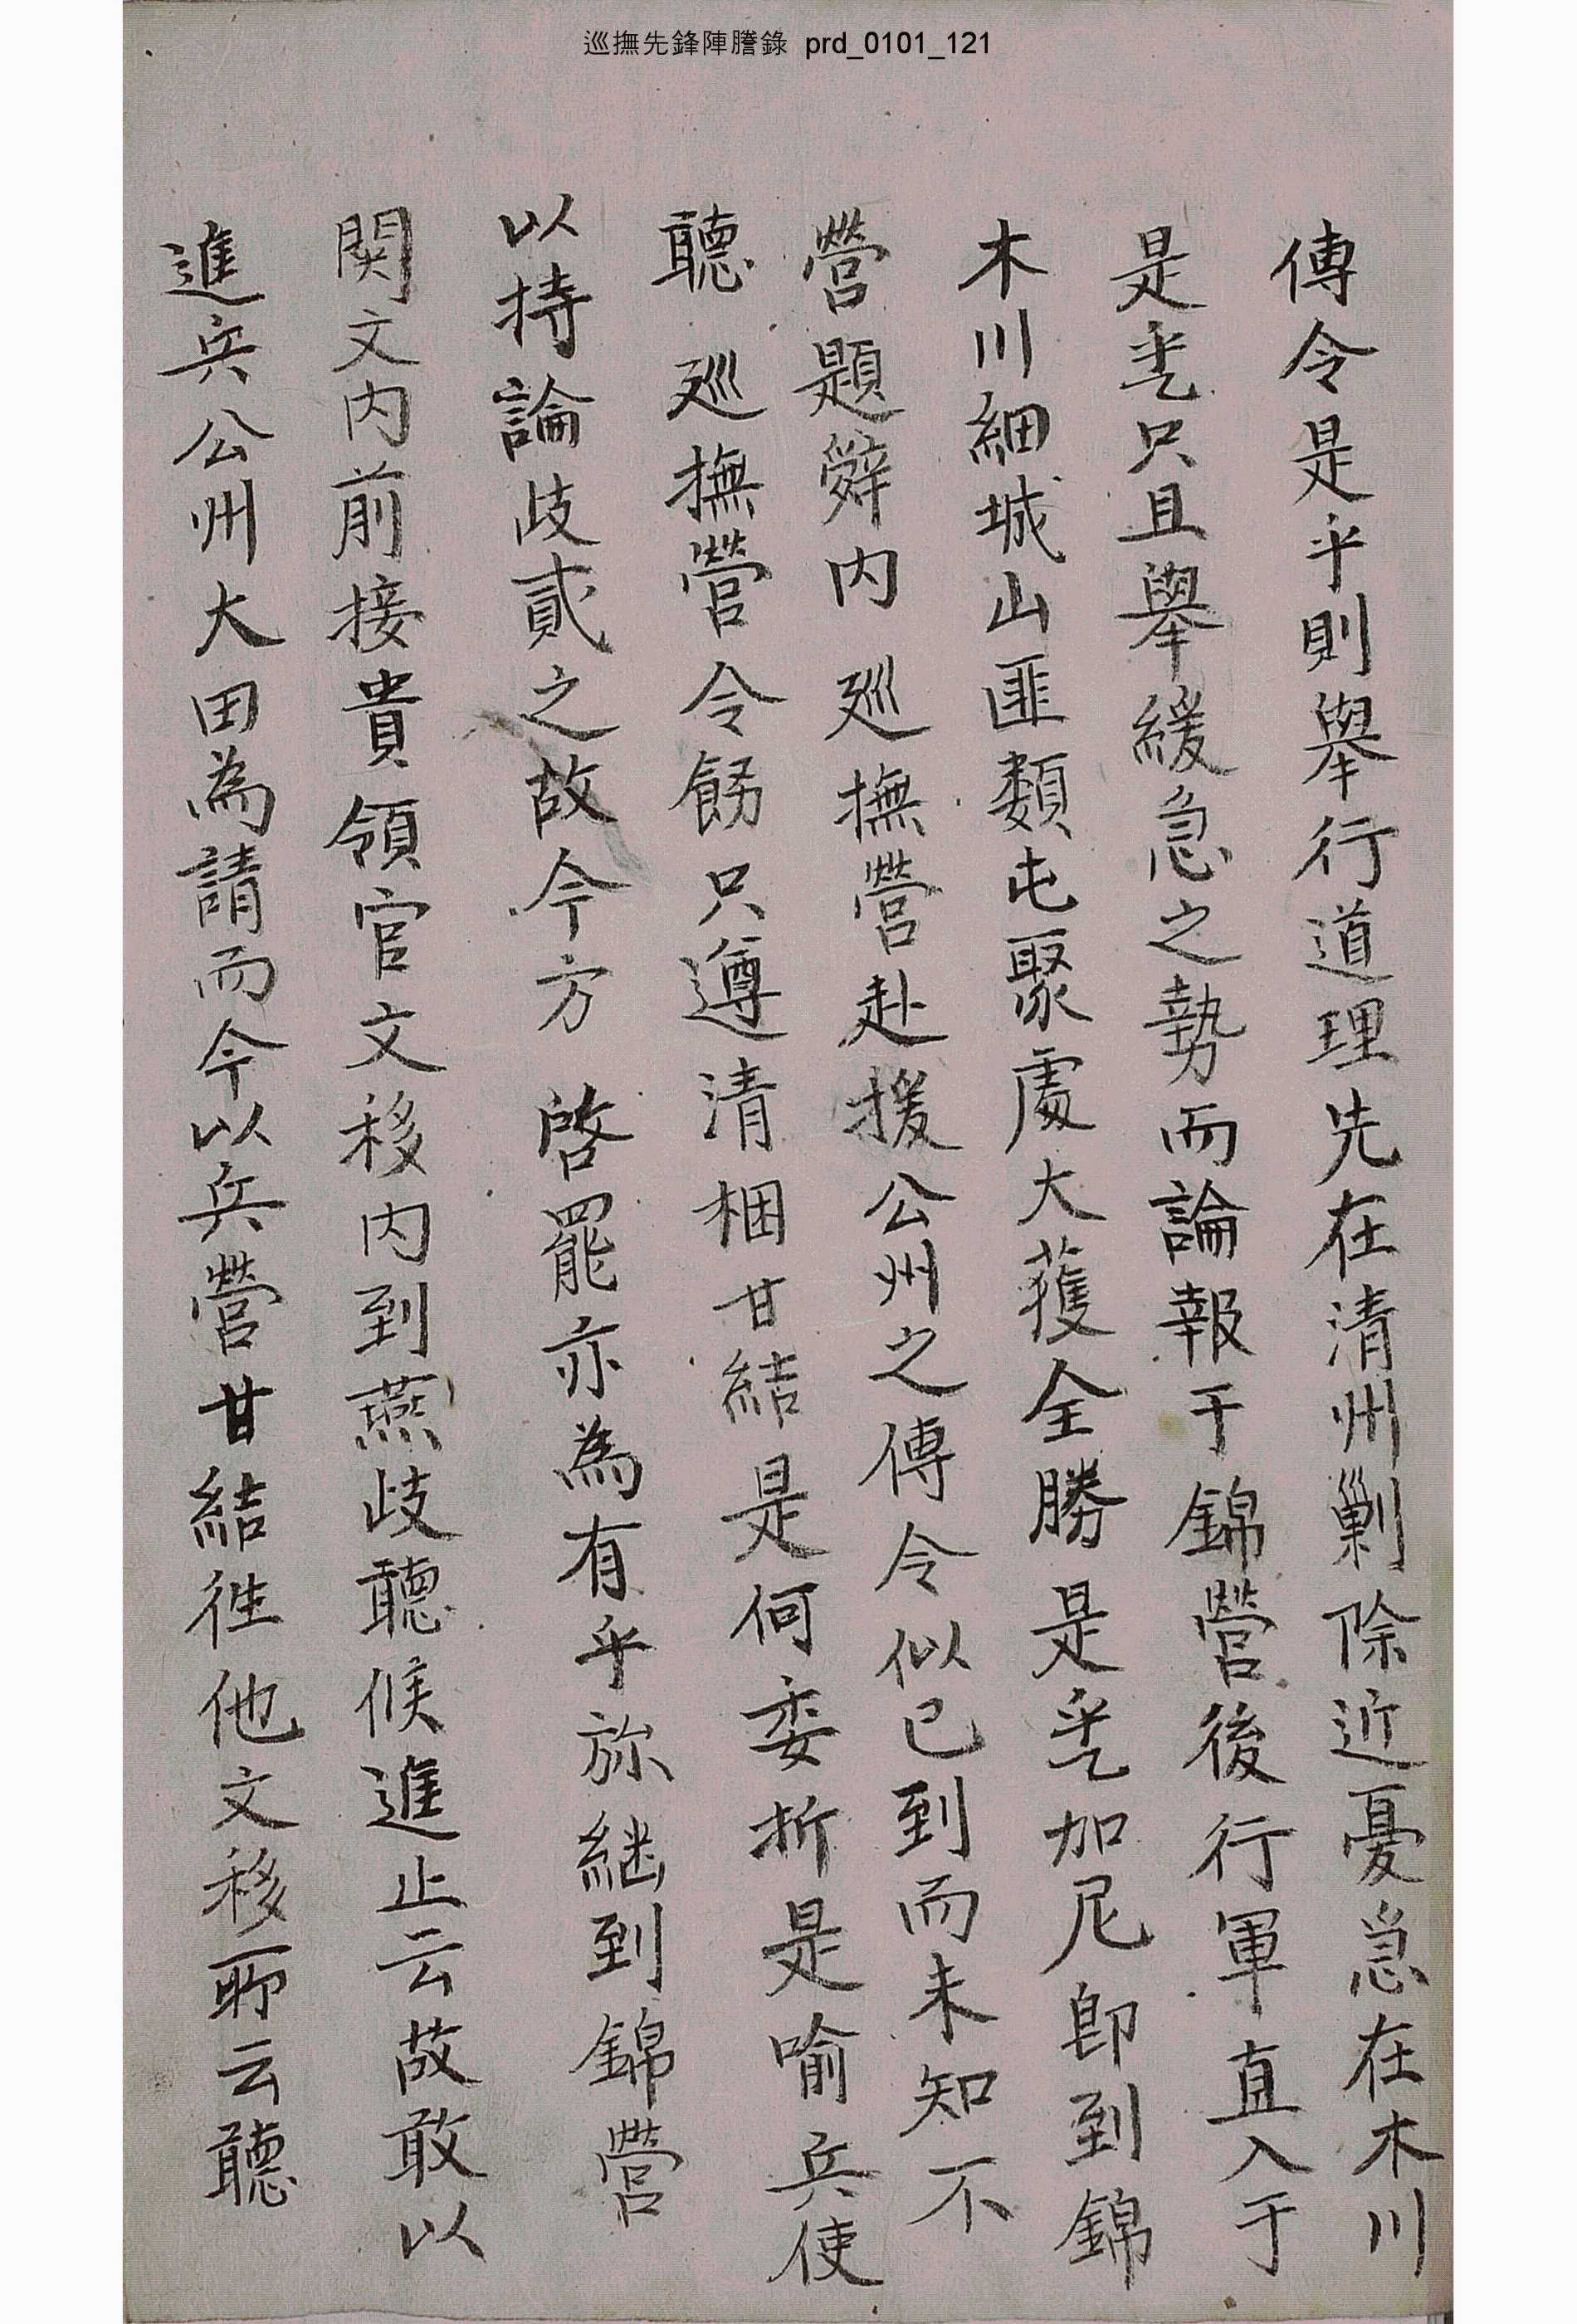 巡撫先鋒陣謄錄 prd_0101_121
傳令是乎則舉行道理先在清州剿除近憂急在木川
是㐣只且舉緩急之勢而論報于錦營後行軍直入于
木川細城山匪類屯聚處大獲全勝是㐣加尼卽到錦
營題辭內 廵撫營赴援公州之傳令似已到而未知不
聽 廵撫營令飭只遵清梱甘結是何委折是喻兵使
以持論歧貳之故今方 啓罷亦為有乎旀継到錦營
関文內前接貴領官文移內到燕歧聽候進止云故敢以
進兵公州大田為請而今以兵營甘結徃他文移所云聽